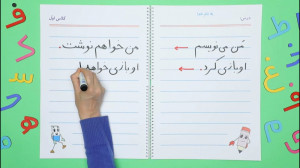 من می‌نویسم
او بازی کرد.
می خواهم نوشت.
او بازی خواهد
کلاس اول